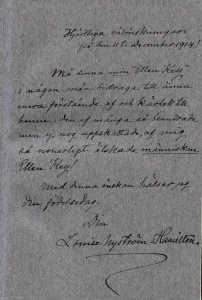 Hjärtliga välönskningar
på den 11te December 1904!
Må denna min "Ellen Key"
i någon mån bidraga till ännu
mera förstående af och kärlek till
henne, den af många så beundrade
men ej nog uppskattade, af mig
så innerligt älskade människan
Ellen Key!
Med denna önskan hälsar jag
den födelsedag.
Din
Louise Nyström Hamilton.